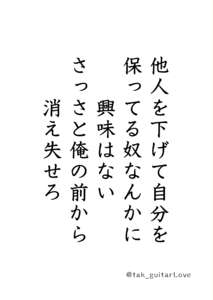 他人を下げて自分を
保ってる奴なんかに
興味はない
さっさと俺の前から
消え失せろ
@tak_guitarlove